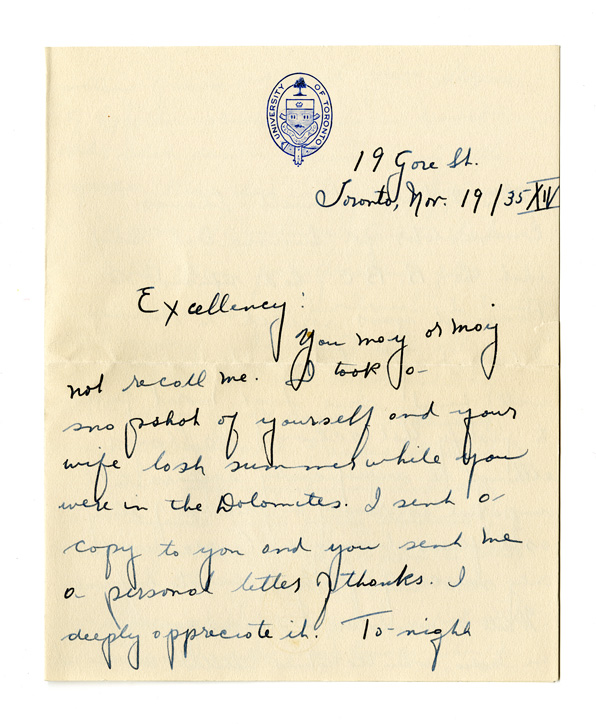 UNIVERSITY OF TORONTO
19 Gore St.
Toronto, Nov. 19/35 XIV
Excellency:
You may or may
not recall me. I took a
snapshot of yourself and your
wife last summer while you
were in the Dolomites. I sent a
copy to you and you sent me
a personal letter of thanks. I
deeply appreciate it. To-night